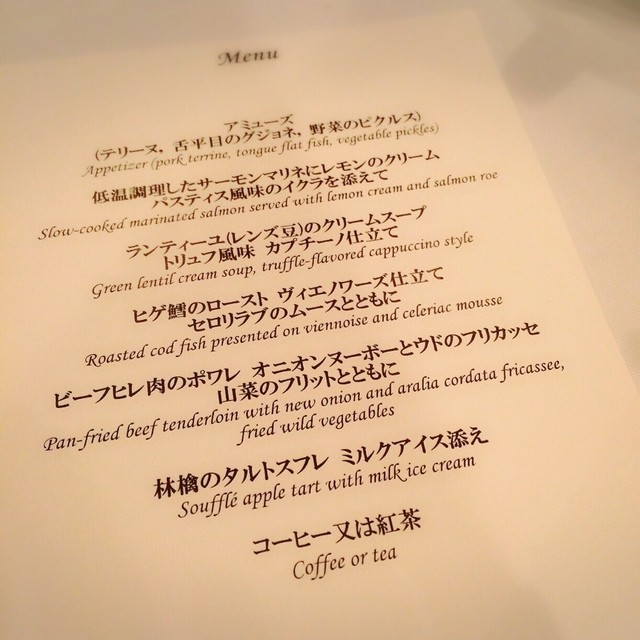 Menu
アミューズ
(テリーヌ, 舌平目のグジョネ, 野菜のピクルス)
Appetizer (pork terrine, tongue flat fish, vegetable pickles)
低温調理したサーモンマリネにレモンのクリーム
パスティス風味のイクラを添えて
Slow-cooked marinated salmon served with lemon cream and salmon roe
ランティーユ(レンズ豆)のクリームスープ
トリュフ風味 カプチーノ仕立て
Green lentil cream soup, truffle-flavored cappuccino style
ヒゲ鱈のロースト ヴィエノワーズ仕立て
セロリラブのムースとともに
Roasted cod fish presented on viennoise and celeriac mousse
ビーフヒレ肉のポワレ オニオンヌーボーとウドのフリカッセ
山菜のフリットとともに
Pan-fried beef tenderloin with new onion and aralia cordata fricassee,
fried wild vegetables
林檎のタルトスフレ ミルクアイス添え
Soufflé apple tart with milk ice cream
コーヒー又は紅茶
Coffee or tea